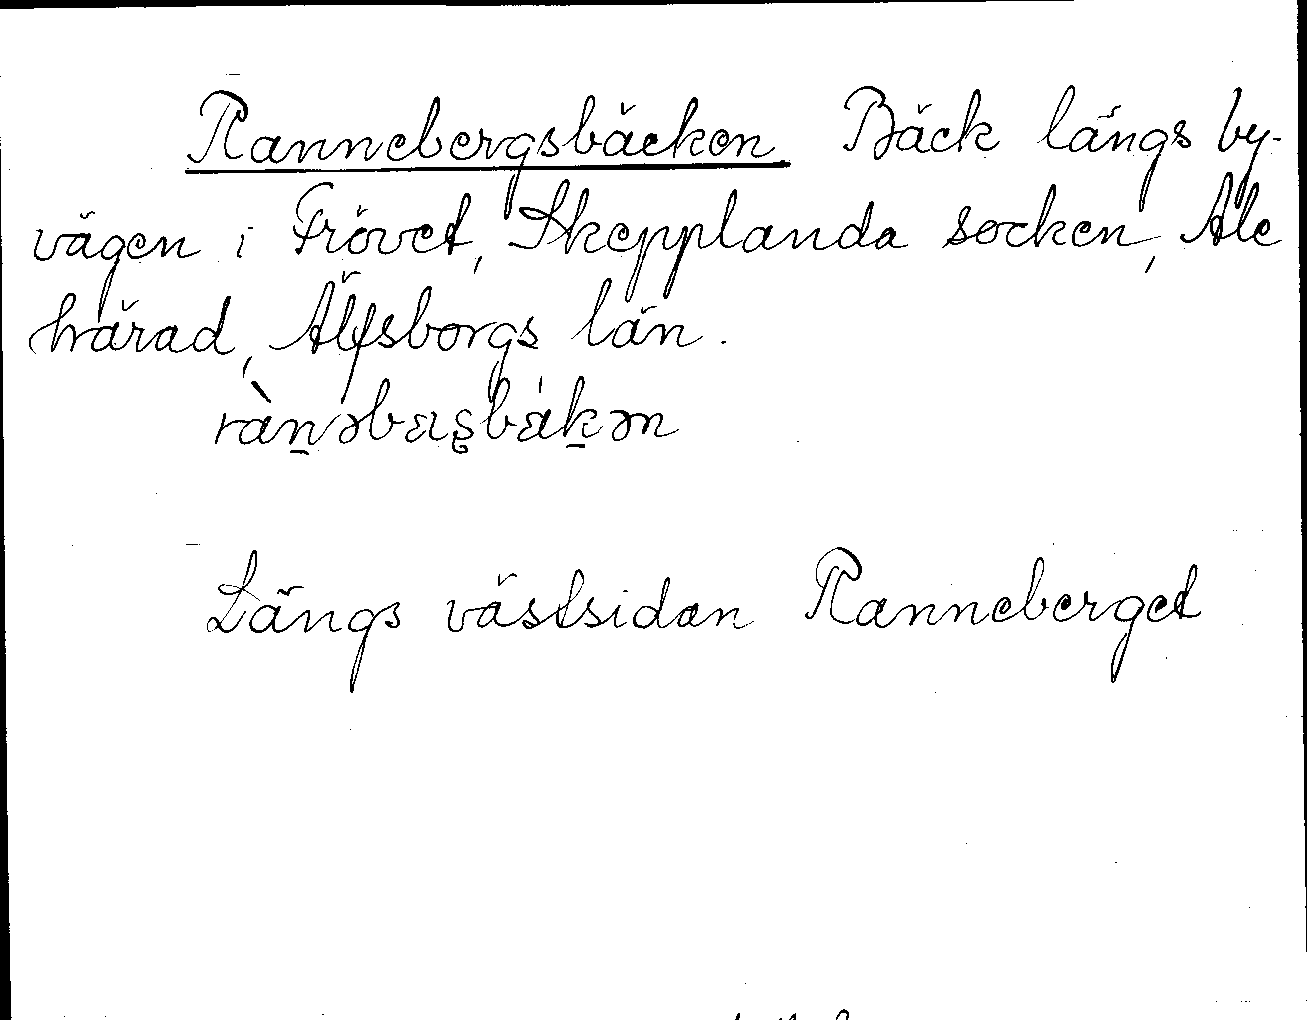 Rannebergsbäcken Bäck längs by-
vägen i Frövet, Skepplanda socken, Ale
härad, Älfsborgs län.
ràn̠əbæꞅgsbǽk̠ən
Längs västsidan Ranneberget